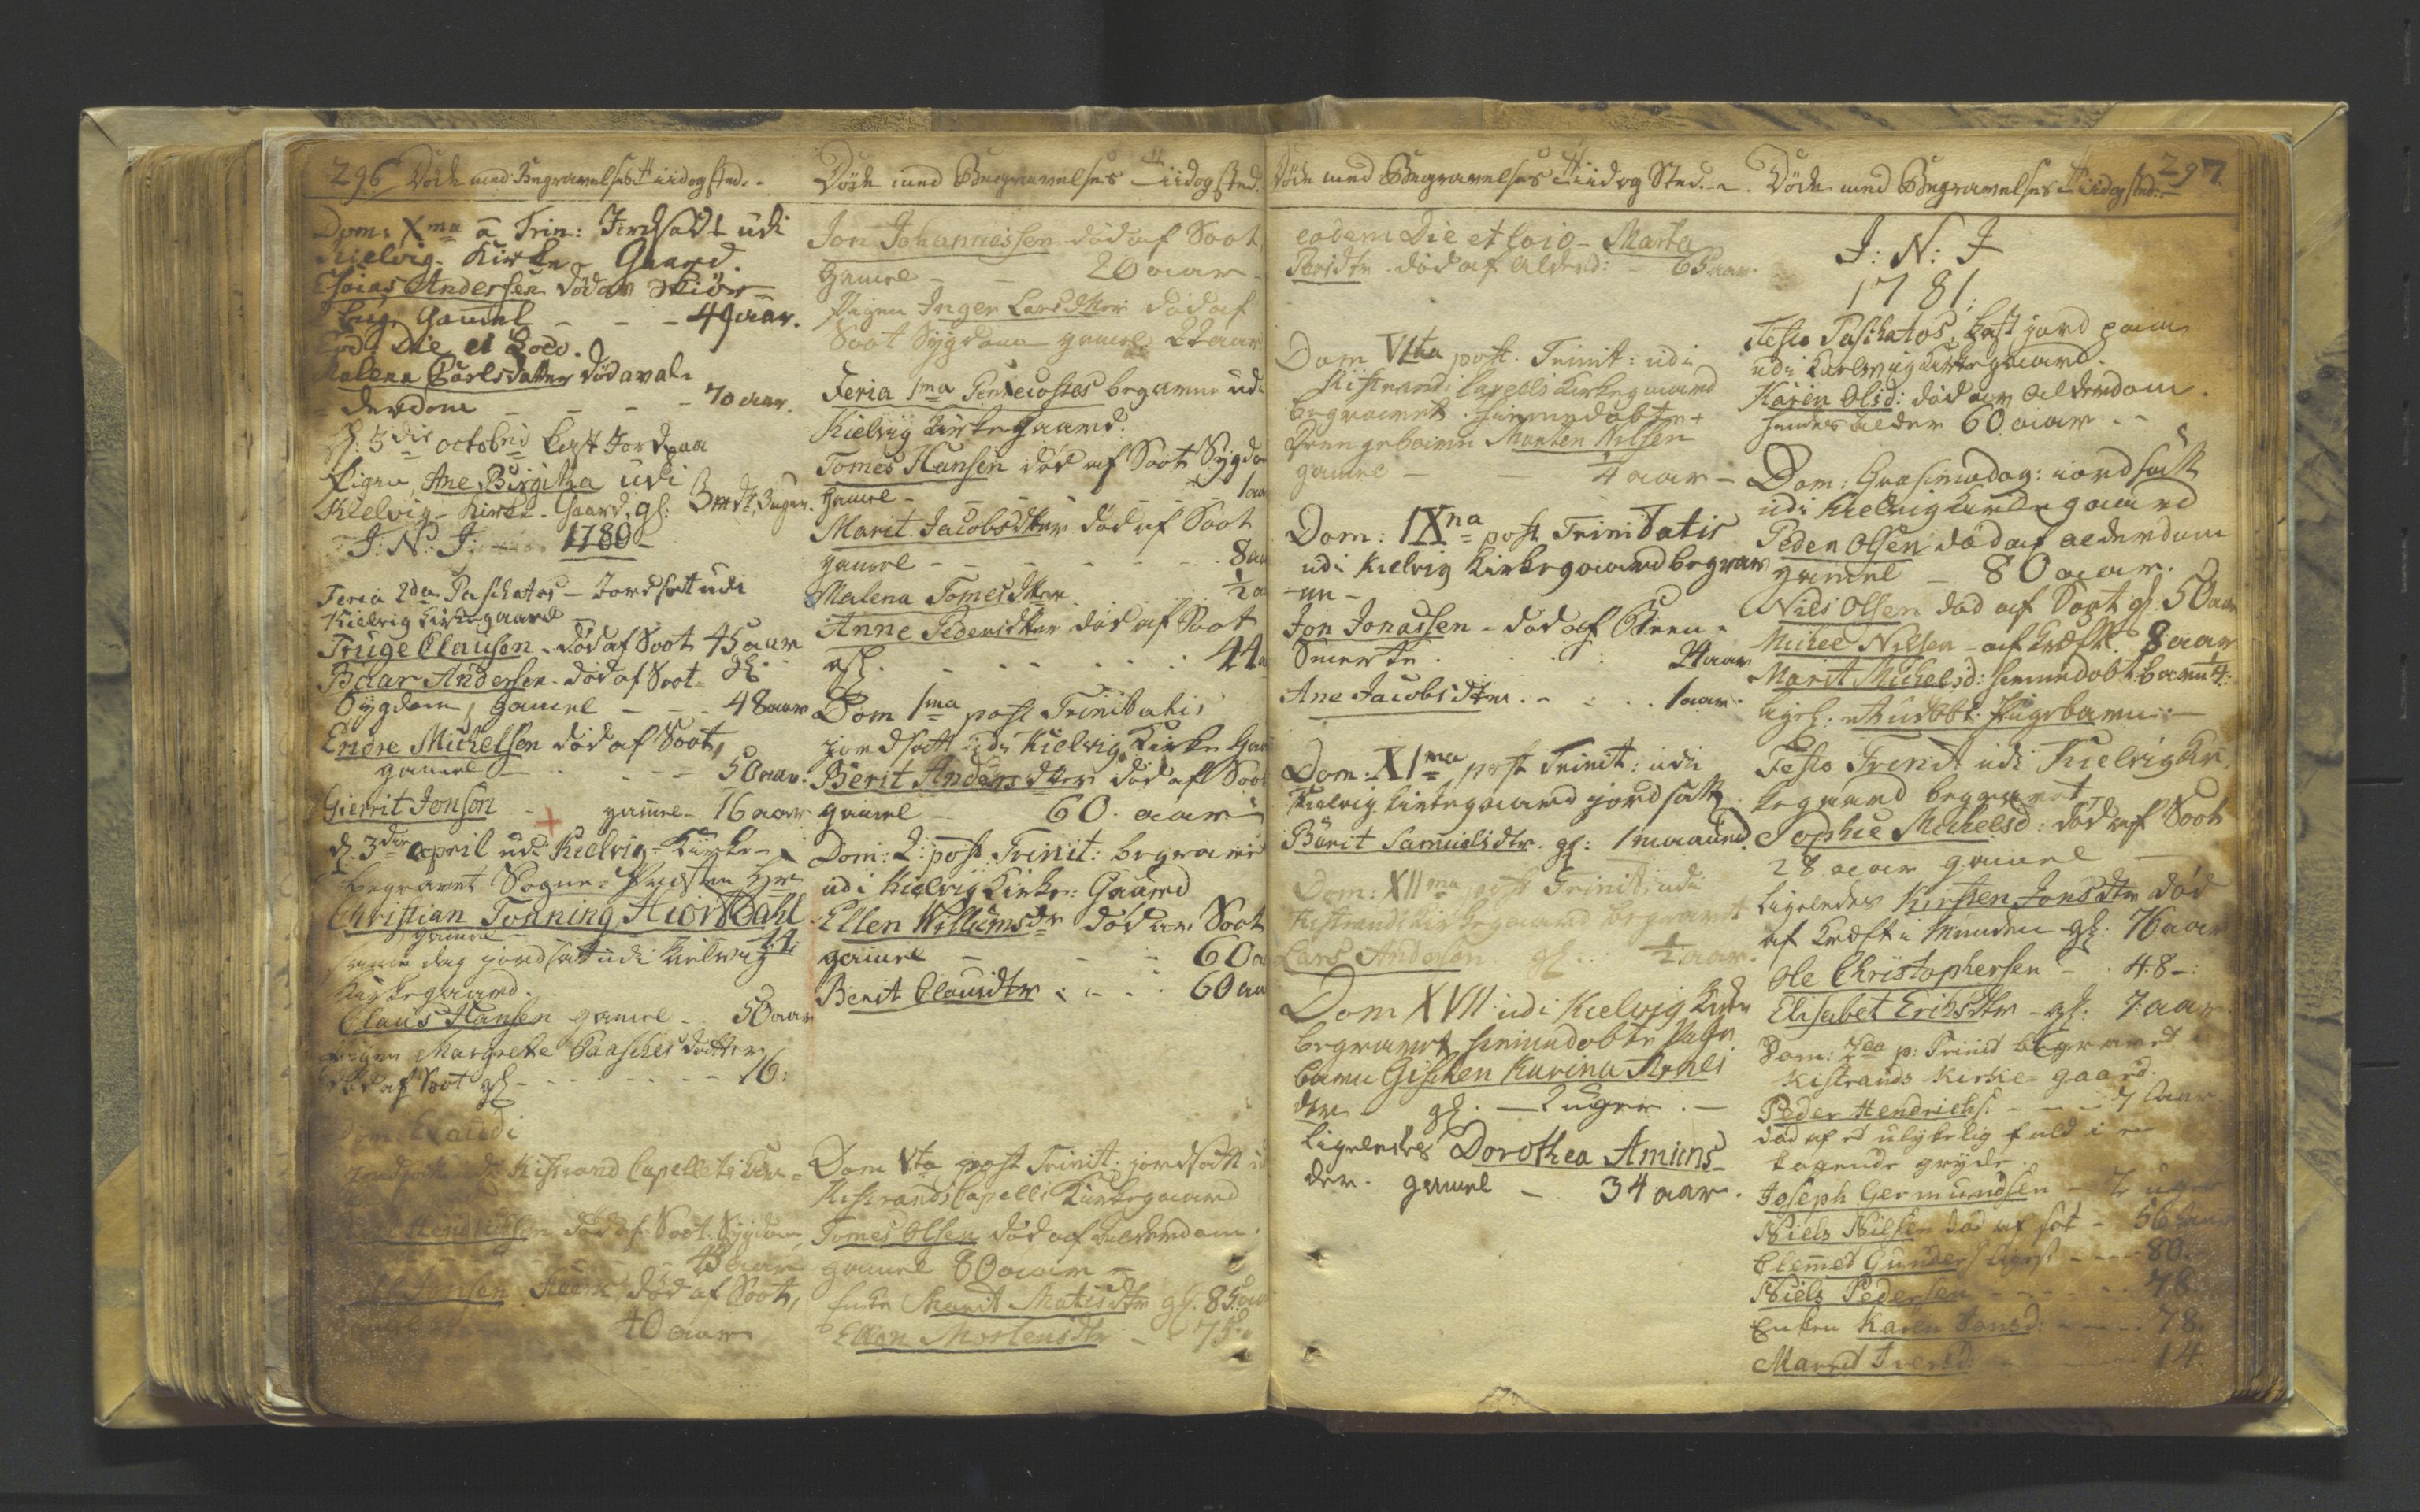 296 Døde med Begravelses Tiid og sted.
Dom: Xma a Trin: Jordsadt udi
Kielvig Kirke-Gaard.
Esaias Andersen død av Skiør-
bug, Gamel - - - 49 aar.
Eod: Die et Loco.
Malena Carlsdatter død av al-
derdom - - - 70 aar.
d: 5die octobris kast Jord paa
Pigen Ane Birgitha udi
Kielvig-Kirke-Gaard, gl:
J: N: J: 1780
Feria 2da Paschatos - Jordsat udi
Kielvig Kirkegaard
Truge Clausen - død af Soot 45 aar
Baar Andersen - død af Soot gl:
Sygdom, gamel - - - 48 aar
Endre Michelsen død af Soot,
gamel - - - 50 aar.
Gierrit Jonsen - gamel - 16 aar
d: 3die april udi Kielvig-Kirke
begravet Sogne-Præsten Hr
Christian Tønning Hiortdahl
gamel - 44:
samme dag jordsat udi Kielvig
Kirkegaard.
Claus Hansen gamel - 50 aar
Pigen Margrete Paasches datter
død af Soot gl - - - 16:
Dom: Exaudi
jordsatt udi Kistrand Capellets Kir-
Hendrichsen død af Soot Sygdom,
43 aar
Jonsen død af Soot,
40 aar
Døde med Begravelses Tiid og sted.
Jon Johannessen død af Soot
gamel - 20 aar
Pigen Inger Larsdtter død af
Soot Sygdom gamel 22 aar
Feria 1ma Pentecostes begravne udi
Kielvig Kirkegaard.
Tomes Hansen død af Soot Sygdo
gamel - - - 1 aar
Marit Jacobsdtter død af Soot
gamel - - - 8 aar
Malena Tomesdtter ½ a
Anne Pedersdtter død af Soot
gl. - - - 44
Dom 1ma post Trinitatis
jordsatt udi Kielvig Kirke Gaa
Berit Andersdtter død af Soot
gamel - 60. aar
Dom: 2: post Trinit: begravet
udi Kielvig Kirke: Gaard
Ellen Willumsdr død av Soot
gamel - - 60 a
Berit Clausdtr: - - 60 aa
Dom Vta post Trinit: jordsatt u
Kistrands Capells Kirkegaard
Tomes Olsen død af Alderdom.
gamel 80 aar -
Enke Marit Matisdtr gl. 85 aar
Ellen Mortensdtr - 75:
Døde med Begravelses Tiid og Sted.
eodem Die et loco - Marta
Persdtr død af Alderd: - 65 aar.
Dom VIta post. Trinit: udi
Kistrands Capells Kirkegaard
begravet hiemmedøbte
Drengebarn Morten Nilsen
gamel - ¼ aar -
Dom: IXna post Trinitatis
udi Kielvig Kirkegaard begrav
-en -
Jon Jonassen - død af Bryn-
Smerte. 24 aar
Ane Jacobsdtr. - 1 aar.
Dom: XIma post Trinit: udi
Kielvig Kirkegaard jordsatt
Bærit Samuelsdtr. gl: 1 maaned.
Dom: XIIma post Trinit: udi
Kistrands Kirkegaard begravet
Lars Andersen gl: ½ aar.
Dom XVII udi Kielvig Kirke
begravet hiemmedøbte Pige
barn Gisken Karina
dtr - gl. - 2 uger. -
Ligeledes Dorothea Amuns-
dtr. gamel - 34 aar.
Døde med Begravelses Tiid og sted: 297.
J: N: J
1781:
Festo Paschatos, kast jord paa
udi Kielvig Kirkegaard.
Karen Olsd: død av Alderdom.
hendes alder 60 aar. -
Dom: Quasimodog: iordsatt
udi Kielvig Kirkegaard
Peder Olsen død af alderdom
gamel - 80 aar.
Niels Olsen død af Soot gl: 50 aar
Michel Nilsen - af Kræft: 8 aar
Marit Michelsd: hiemmedøbt barn ¼:
ligel: et udøbt Pigebarn: -
Festo Trinit: udi Kielvig Kir-
kegaard begravet
Sophie Michelsd: død af Soot
28 aar gamel -
Ligeledes Kirsten Jonsdtr død
af Kræft i Munden gl: 76 aar
Ole Christophersen - 48 -:
Elisabet Erichsdtr - gl: 7 aar.
Dom: 2da p: Trinit begravet i
Kistrands Kirke-gaard.
Peder Hendrichs: - - - 7 aar.
død af et ulykelig fald i en
kogende gryde.
Joseph Germundsen - 7 uger
Niels Nilsen død af sot - 56 aar
Clemmed Gunders: - - - 80.
Niels Pedersen - - - 78
Enken Karen Jonsd: - - - 78.
Marrit Iversd: - - - 14.